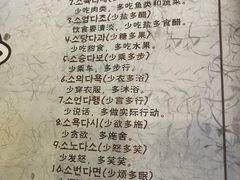 2.소육다채(少肉多菜)
少吃肉类，多吃鱼类和蔬菜。
3.소염다초(少盐多醋)
饮食要清淡，少吃盐多食醋。
4.소당다과(少糖多果)
少吃甜食，多吃水果。
5.소승다보(少乘多步)
少乘车，多步行。
6.소의다욕(少衣多浴)
少穿衣服，多沐浴。
7.소언다행(少言多行)
少说话，多做实际行动。
8.소욕다시(少欲多施)
少贪欲，多施舍。
9.소노다소(少怒多笑)
少发怒，多笑笑。
10.소번다면(少烦多眠)